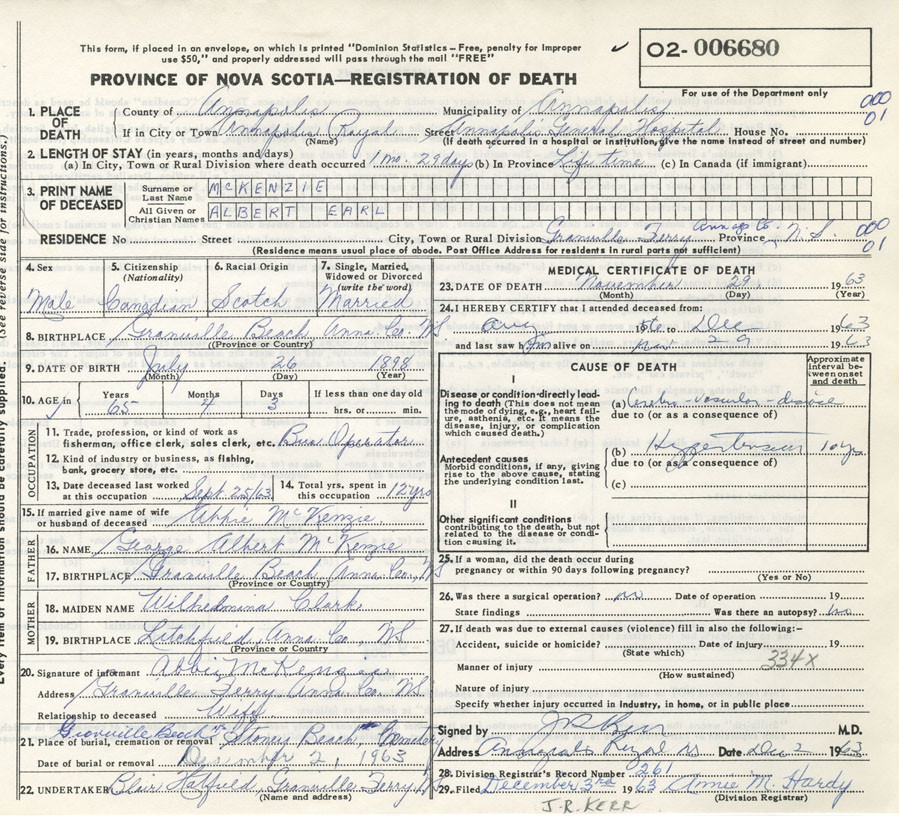 This form, if placed in an envelope, on which is printed "Dominion Statistics - Free, penalty for improper
use $50," and properly addressed will pass through the mail "FREE"
✓ 02-006680
PROVINCE OF NOVA SCOTIA—REGISTRATION OF DEATH
For use of the Department only
1. PLACE OF DEATH County of Annapolis Municipality of Annapolis 000
If in City or Town Annapolis Royal Street Annapolis General Hospital House No. 01
(Name) (If death occurred in a hospital or institution, give the name instead of street and number)
2. LENGTH OF STAY (in years, months and days)
(a) In City, Town or Rural Division where death occurred 1 mo. 29 days (b) In Province Life time (c) In Canada (if immigrant)
3. PRINT NAME OF DECEASED Surname or Last Name MCKENZIE
All Given or Christian Names ALBERT EARL
RESIDENCE No Street City, Town or Rural Division Granville Ferry Annap Co. Province N.S. 000 01
(Residence means usual place of abode. Post Office Address for residents in rural parts not sufficient)
4. Sex Male
5. Citizenship (Nationality) Canadian
6. Racial Origin Scotch
7. Single, Married, Widowed or Divorced (write the word) Married
8. BIRTHPLACE Granville Beach Anna Co. NS
(Province or Country)
9. DATE OF BIRTH July 26 1898
(Month) (Day) (Year)
10. AGE in Years 65 Months 4 Days 3 If less than one day old hrs. or min.
OCCUPATION
11. Trade, profession, or kind of work as fisherman, office clerk, sales clerk, etc. Bus Operator
12. Kind of industry or business, as fishing, bank, grocery store, etc.
13. Date deceased last worked at this occupation Sept. 25/63
14. Total yrs. spent in this occupation 12 yrs
15. If married give name of wife or husband of deceased Abbie McKenzie
FATHER
16. NAME George Albert McKenzie
17. BIRTHPLACE Granville Beach Anna Co., NS
(Province or Country)
MOTHER
18. MAIDEN NAME Wilhedmina Clark
19. BIRTHPLACE Litchfield, Anna Co, NS
(Province or Country)
20. Signature of informant Abbie McKenzie
Address Granville Ferry Anna Co. NS
Relationship to deceased Wife
21. Place of burial, cremation or removal Granville Beach Stoney Beach Cemetery
Date of burial or removal December 2, 1963
22. UNDERTAKER Blair Hatfield, Granville Ferry, NS
(Name and address)
MEDICAL CERTIFICATE OF DEATH
23. DATE OF DEATH November 29 1963
(Month) (Day) (Year)
24. I HEREBY CERTIFY that I attended deceased from:
19 to Dec 1963
and last saw him alive on Nov 29 1963
CAUSE OF DEATH
Approximate interval between onset and death
I
Disease or condition directly leading to death (This does not mean the mode of dying, e.g., heart failure, asthenia, etc. It means the disease, injury, or complication which caused death.)
(a) Cerebro-vascular-disease
due to (or as a consequence of)
Antecedent causes
Morbid conditions, if any, giving rise to the above cause, stating the underlying condition last.
(b) Hypertension 10 yrs
due to (or as a consequence of)
(c)
II
Other significant conditions
contributing to the death, but not related to the disease or condition causing it.
25. If a woman, did the death occur during pregnancy or within 90 days following pregnancy?
(Yes or No)
26. Was there a surgical operation? no Date of operation 19
State findings Was there an autopsy? no
27. If death was due to external causes (violence) fill in also the following:-
Accident, suicide or homicide? Date of injury 19
(State which) 334X
Manner of injury
(How sustained)
Nature of injury
Specify whether injury occurred in industry, in home, or in public place
Signed by M.D.
Address Annapolis Royal NS Date Dec 2 1963
28. Division Registrar's Record Number 261
29. Filed December 3rd 1963 Annie M. Hardy
(Division Registrar)
J.R. KERR
(See reverse side for instructions.)
Every item of information should be carefully supplied.